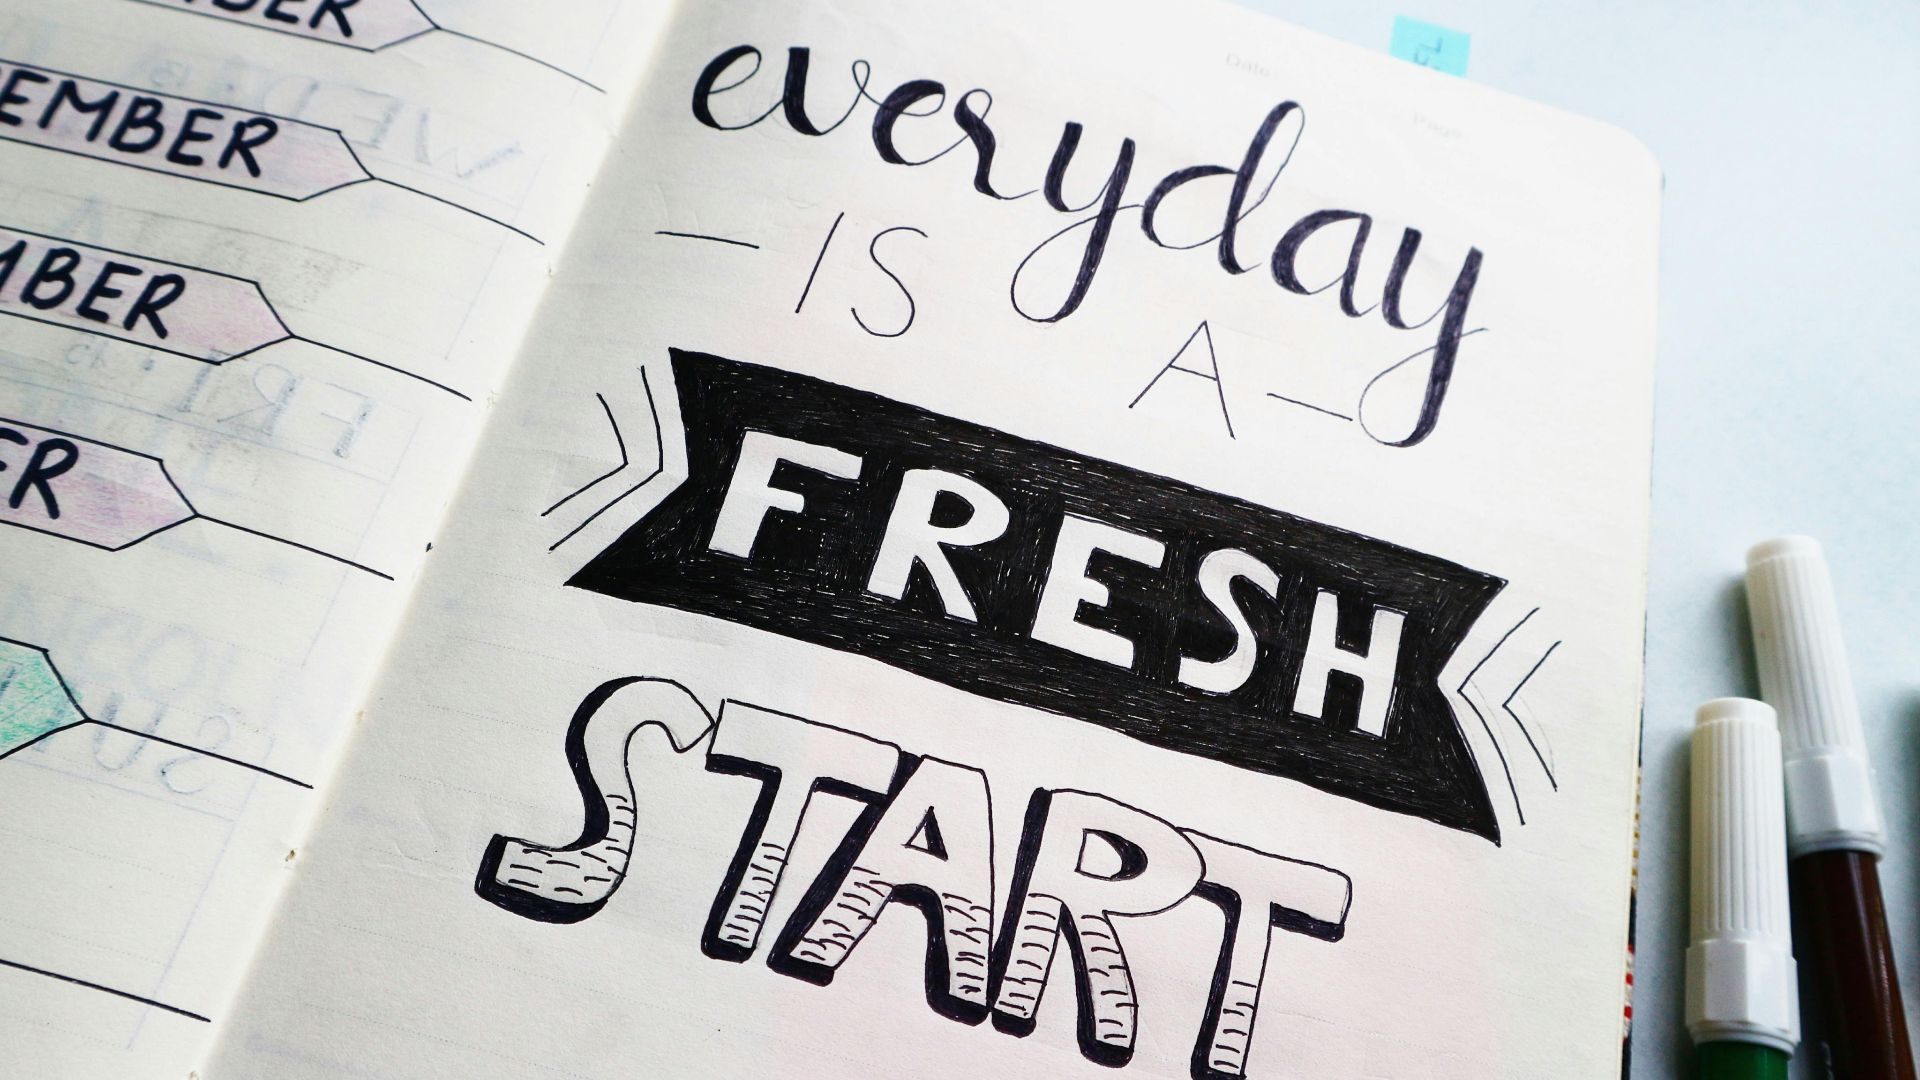 EMBER
MBER
ER
Date
Page
everyday
— IS A —
FRESH
START